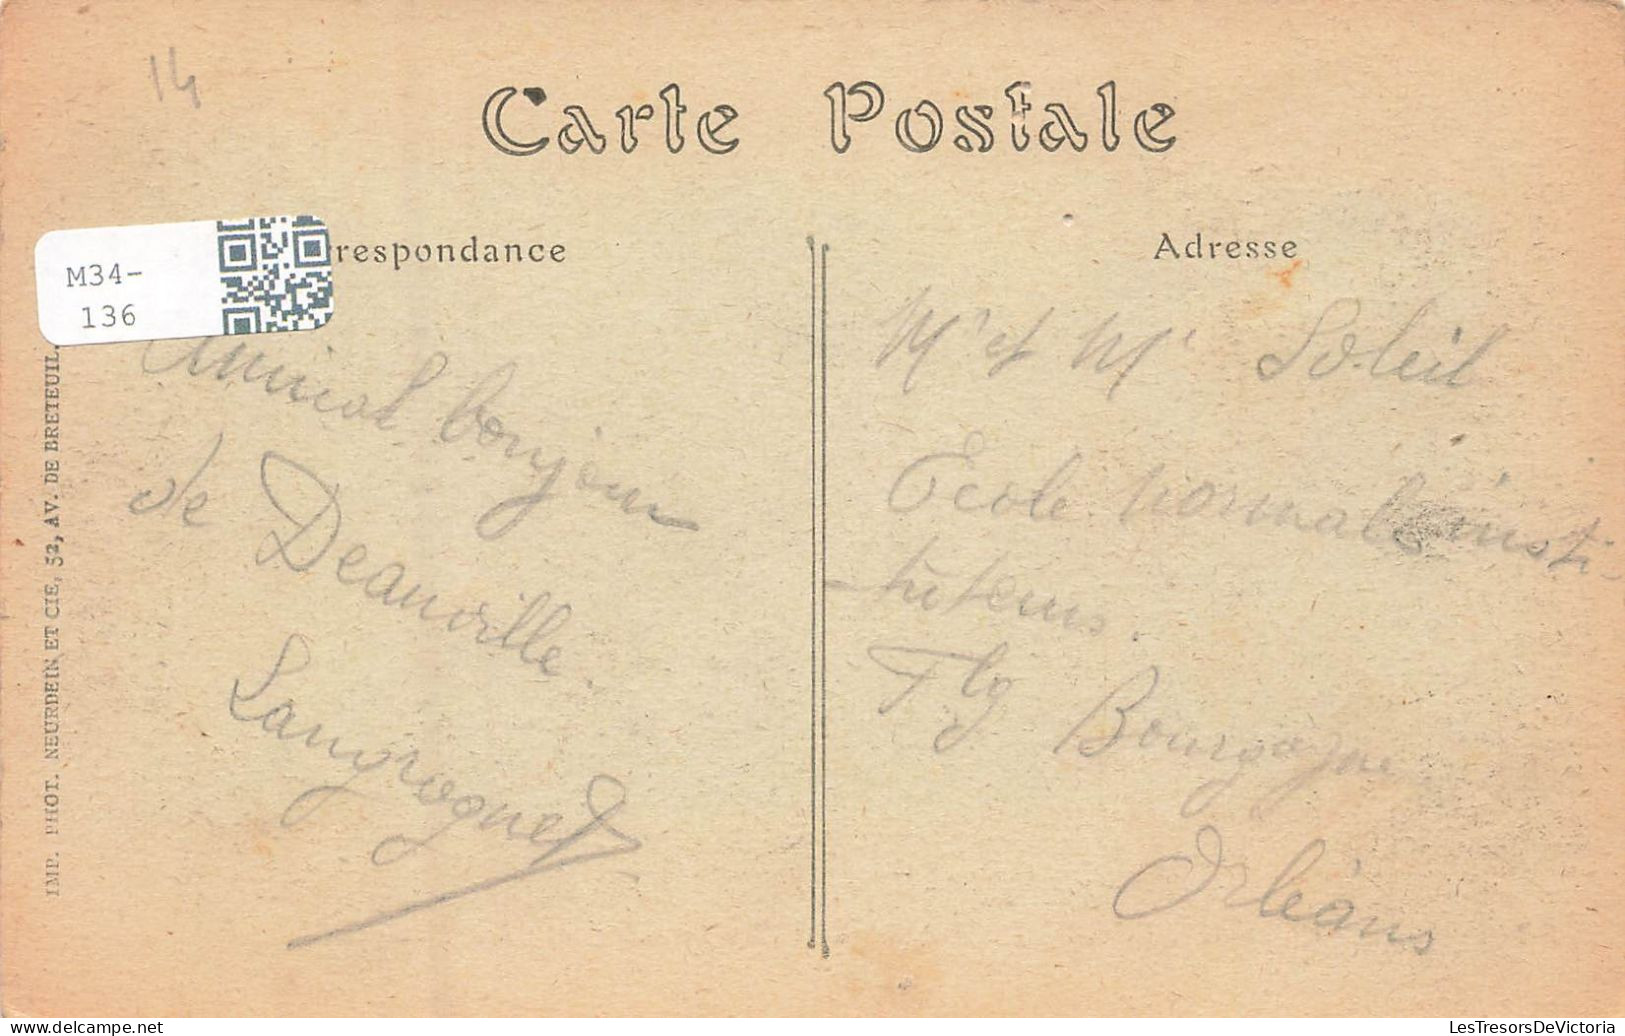 14
Carte Postale
M34-
136
respondance
Adresse
Amical bonjour
de Deauville.
Langrognet
Mr et Me Soleil
Ecole normale insti-
-tuteurs.
Fbg Bourgogne
Orléans
IMP. PHOT. NEURDEIN ET CIE, 52, AV. DE BRETEUIL.
delcampe.net
LesTresorsDeVictoria